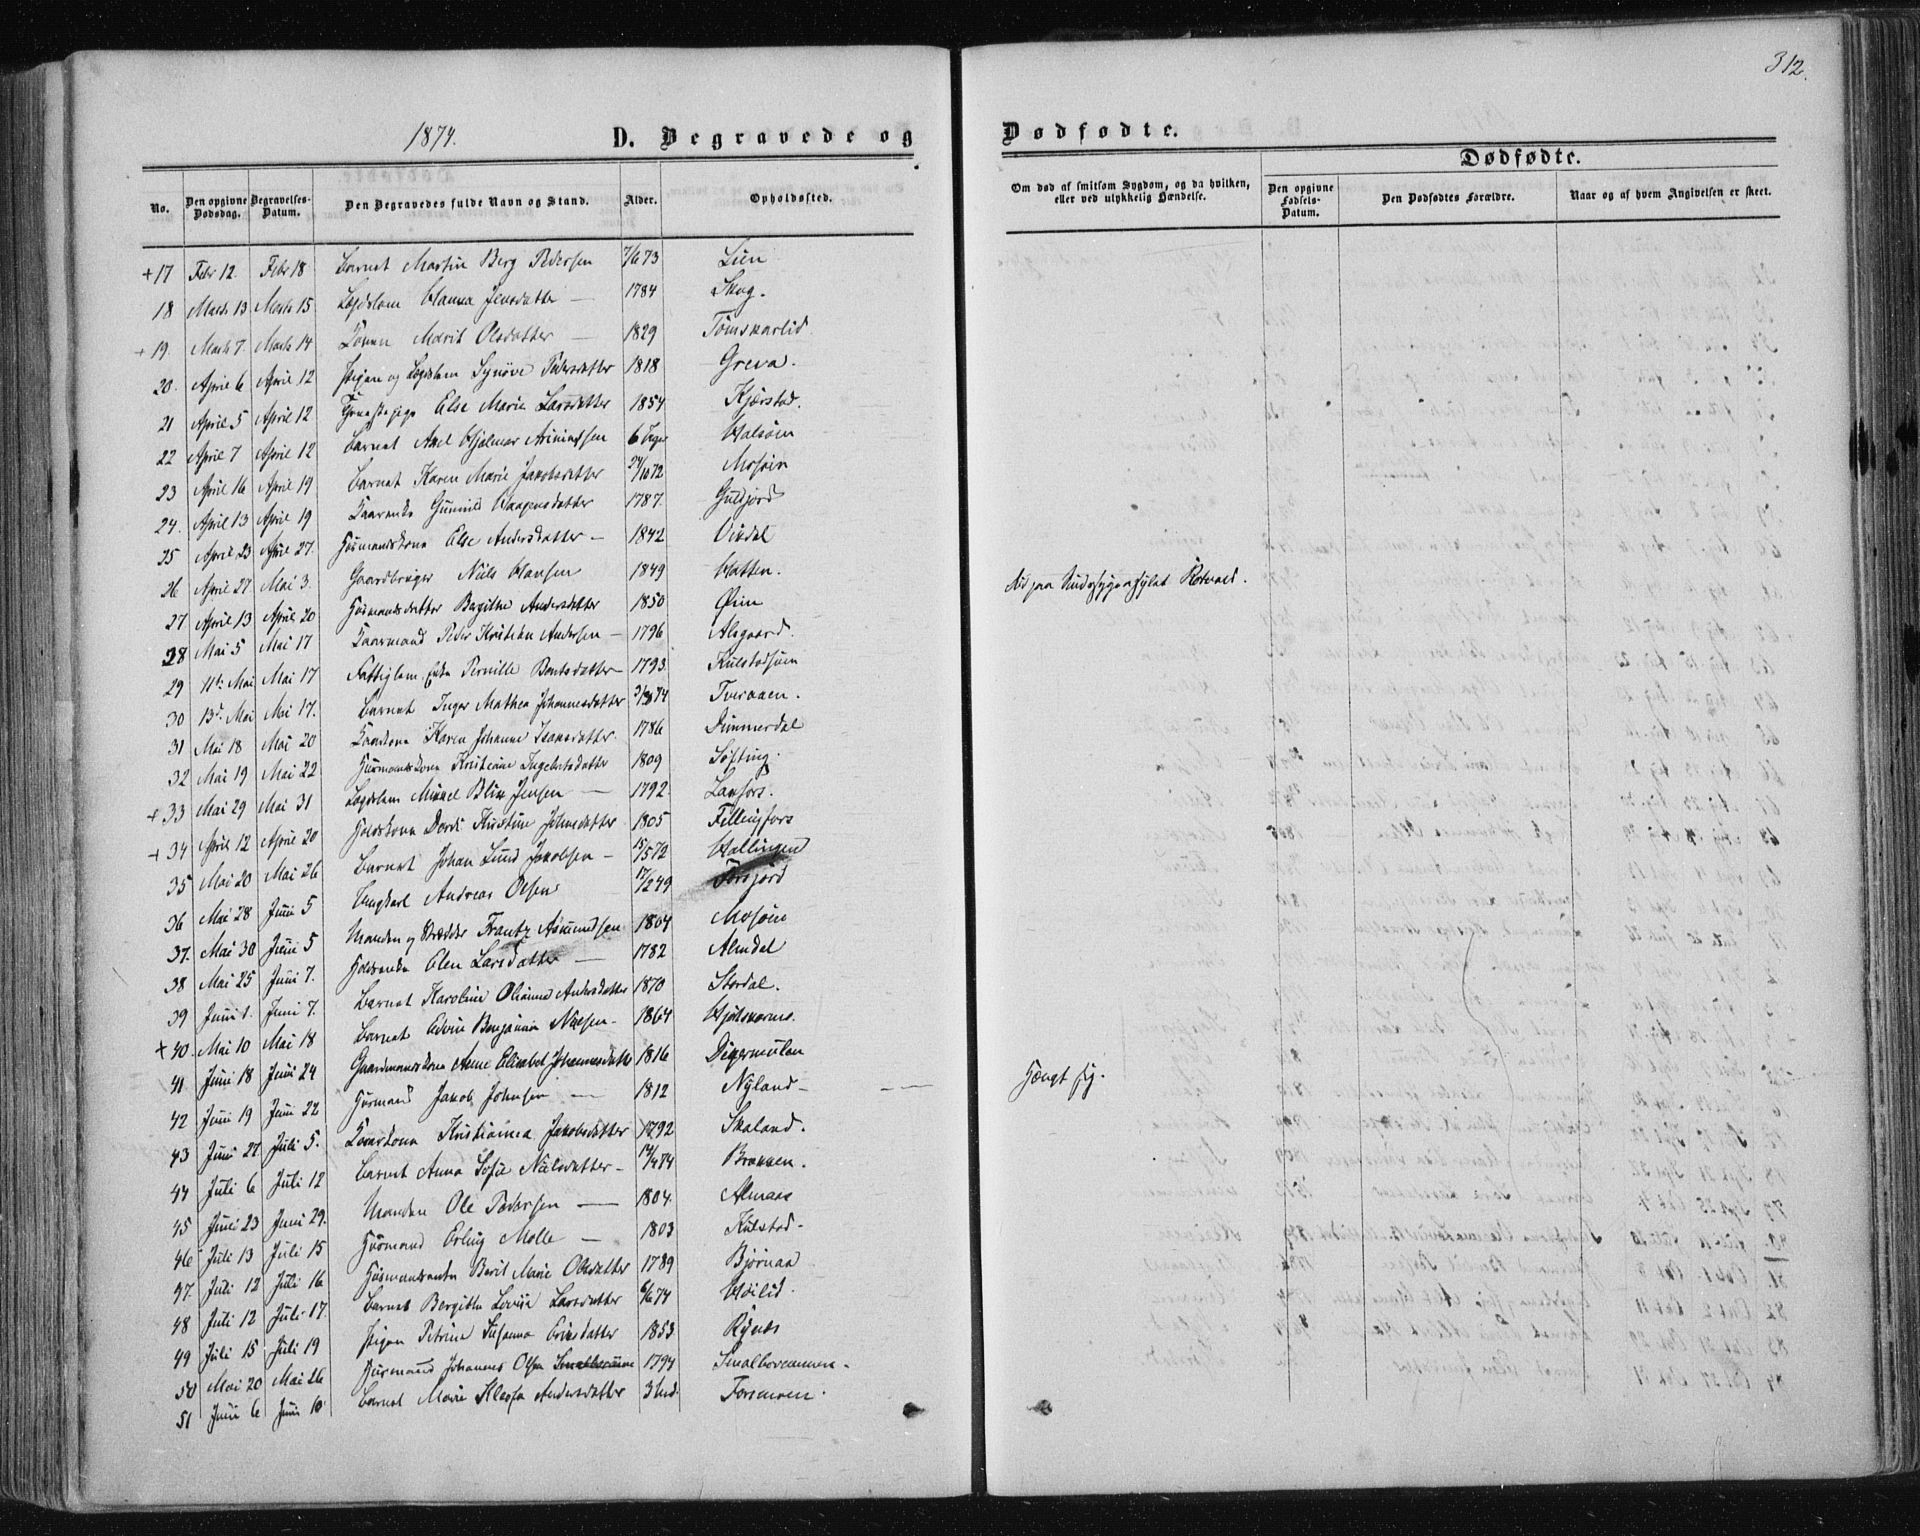 312.
1874. D. Begravede og Dødfødte.
Dødfødte.
No. Den opgivne Dødsdag. Begravelses-Datum. Den Begravedes fulde Navn og Stand. Alder. Opholdssted.
Om død af smitsom Sygdom, og da hvilken, eller ved ulykkelig Hændelse. Den opgivne Fødsels-Datum. Den Dødfødtes Forældre. Naar og af hvem Angivelsen er skeet.
+17 Febr 12. Febr 18 Barnet Martin Berg Pedersen 7/6 73 Lien
18 Marts 13 Marts 15 Lægdslem Hanna Jensdatter — 1784 Skog.
+19. Marts 7. Marts 14 Konen Marit Olsdatter — 1829 Tömskarlid
20. April 6 April 12 Pigen og Lægdslem Synöve Pedersdatter 1818 Greva.
21 April 5 April 12 Tjenestepige Else Marie Larsdatter 1854 Kjærstad.
22 April 7 April 12 Barnet Axel Hjalmar Asmundsen 6 Uger Halsöen
23 April 16 April 19 Barnet Karen Marie Jakobsdatter 24/10 72 Mosöen
24. April 13 April 19 Kaarenke Gunnild Haagensdatter 1787.
25 April 23 April 27. Husmandskone Else Andersdatter — 1842 Visdal
26 April 27 Mai 3. Gaardbruger Niels Hansen 1849 Hatten. död paa Sindssygeasylet Rotvold.
27 April 13 April 20 Husmandsdatter Bergithe Andersdatter 1850 Öien
28 Mai 5 Mai 17 Kaarmand Peder Kristian Andersen — 1796 Alsgaard.
29 11te Mai Mai 17 Fattiglem Enke Pernille Bentsdatter — 1793. Kulstadsöen
30 13de Mai Mai 17. Barnet Inger Mathea Johannesdatter 74 Tveraaen.
31 Mai 18 Mai 20 Kaarkone Karen Johanne Isaksdatter. 1786 Dunnerdal
32 Mai 19 Mai 22 Husmandskone Kristiane Ingebrtsdatter 1809 Söfting.
+33 Mai 29 Mai 31 Lægdslem Mikkel Blix Jensen — 1792. Laxfors.
+34 April 12 April 20 Kone Dordi Kristine Johnsdatter 1805 Fellingfors
35 Mai 20 Mai 26 Barnet Johan Lund Jakobsen — 15/5 72 Hallingen
36 Mai 28 Juni 5 Ungkarl Andreas Olsen 17/2 49
37. Mai 30 Juni 5 Manden og Skrædder Frantz Asmundsen 1804 Mosöen
38 Mai 25 Juni 7. Elen Larsdatter — 1782 Almdal
39 Juni 1. Juni 7. Barnet Karoline Olianna Andersdatter 1870 Stordal.
+40. Mai 10 Mai 18 Barnet Edvin Benjamin Nielsen — 1864
41 Juni 18 Juni 24 Gaardmandskone Anne Elisabet Johannesdatter 1816 Digermulen
42 Juni 19 Juni 22 Husmand Jakob Johnsen — 1812 Nyland — Hængt sig.
43 Juni 27 Juli 5. Kaarkone Kristianna Jakobsdatter 1792 Skaland.
44 Juli 6 Juli 12 Barnet Anna Sofie Nielsdatter — 74 Brækken.
45 Juni 23 Juni 29. Manden Ole Pedersen — 1804. Almaas
46 Juli 13 Juli 15 Husmand Erling Molle — 1803 Kulstad —
47. Juli 12 Juli 16 Husmandsenke Berit Marie Olsdatter 1789 Björnaa
48 Juli 12 Juli 17. Barnet Bergitte Lovise Larsdatter 74 Höilid.
49 Juli 15 Juli 19 Pigen Petrine Susanna Eriksdatter 1853 Rynes
50 Mai 20 Mai 26 Husmand Johannes Olsen 1794 Smalboreommen.
51 Juni 6 Juni 10 Barnet Marie Andersdatter 3 Forsmoen.